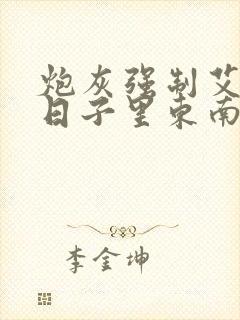 炮灰强制艾
日子里东南
李金坤